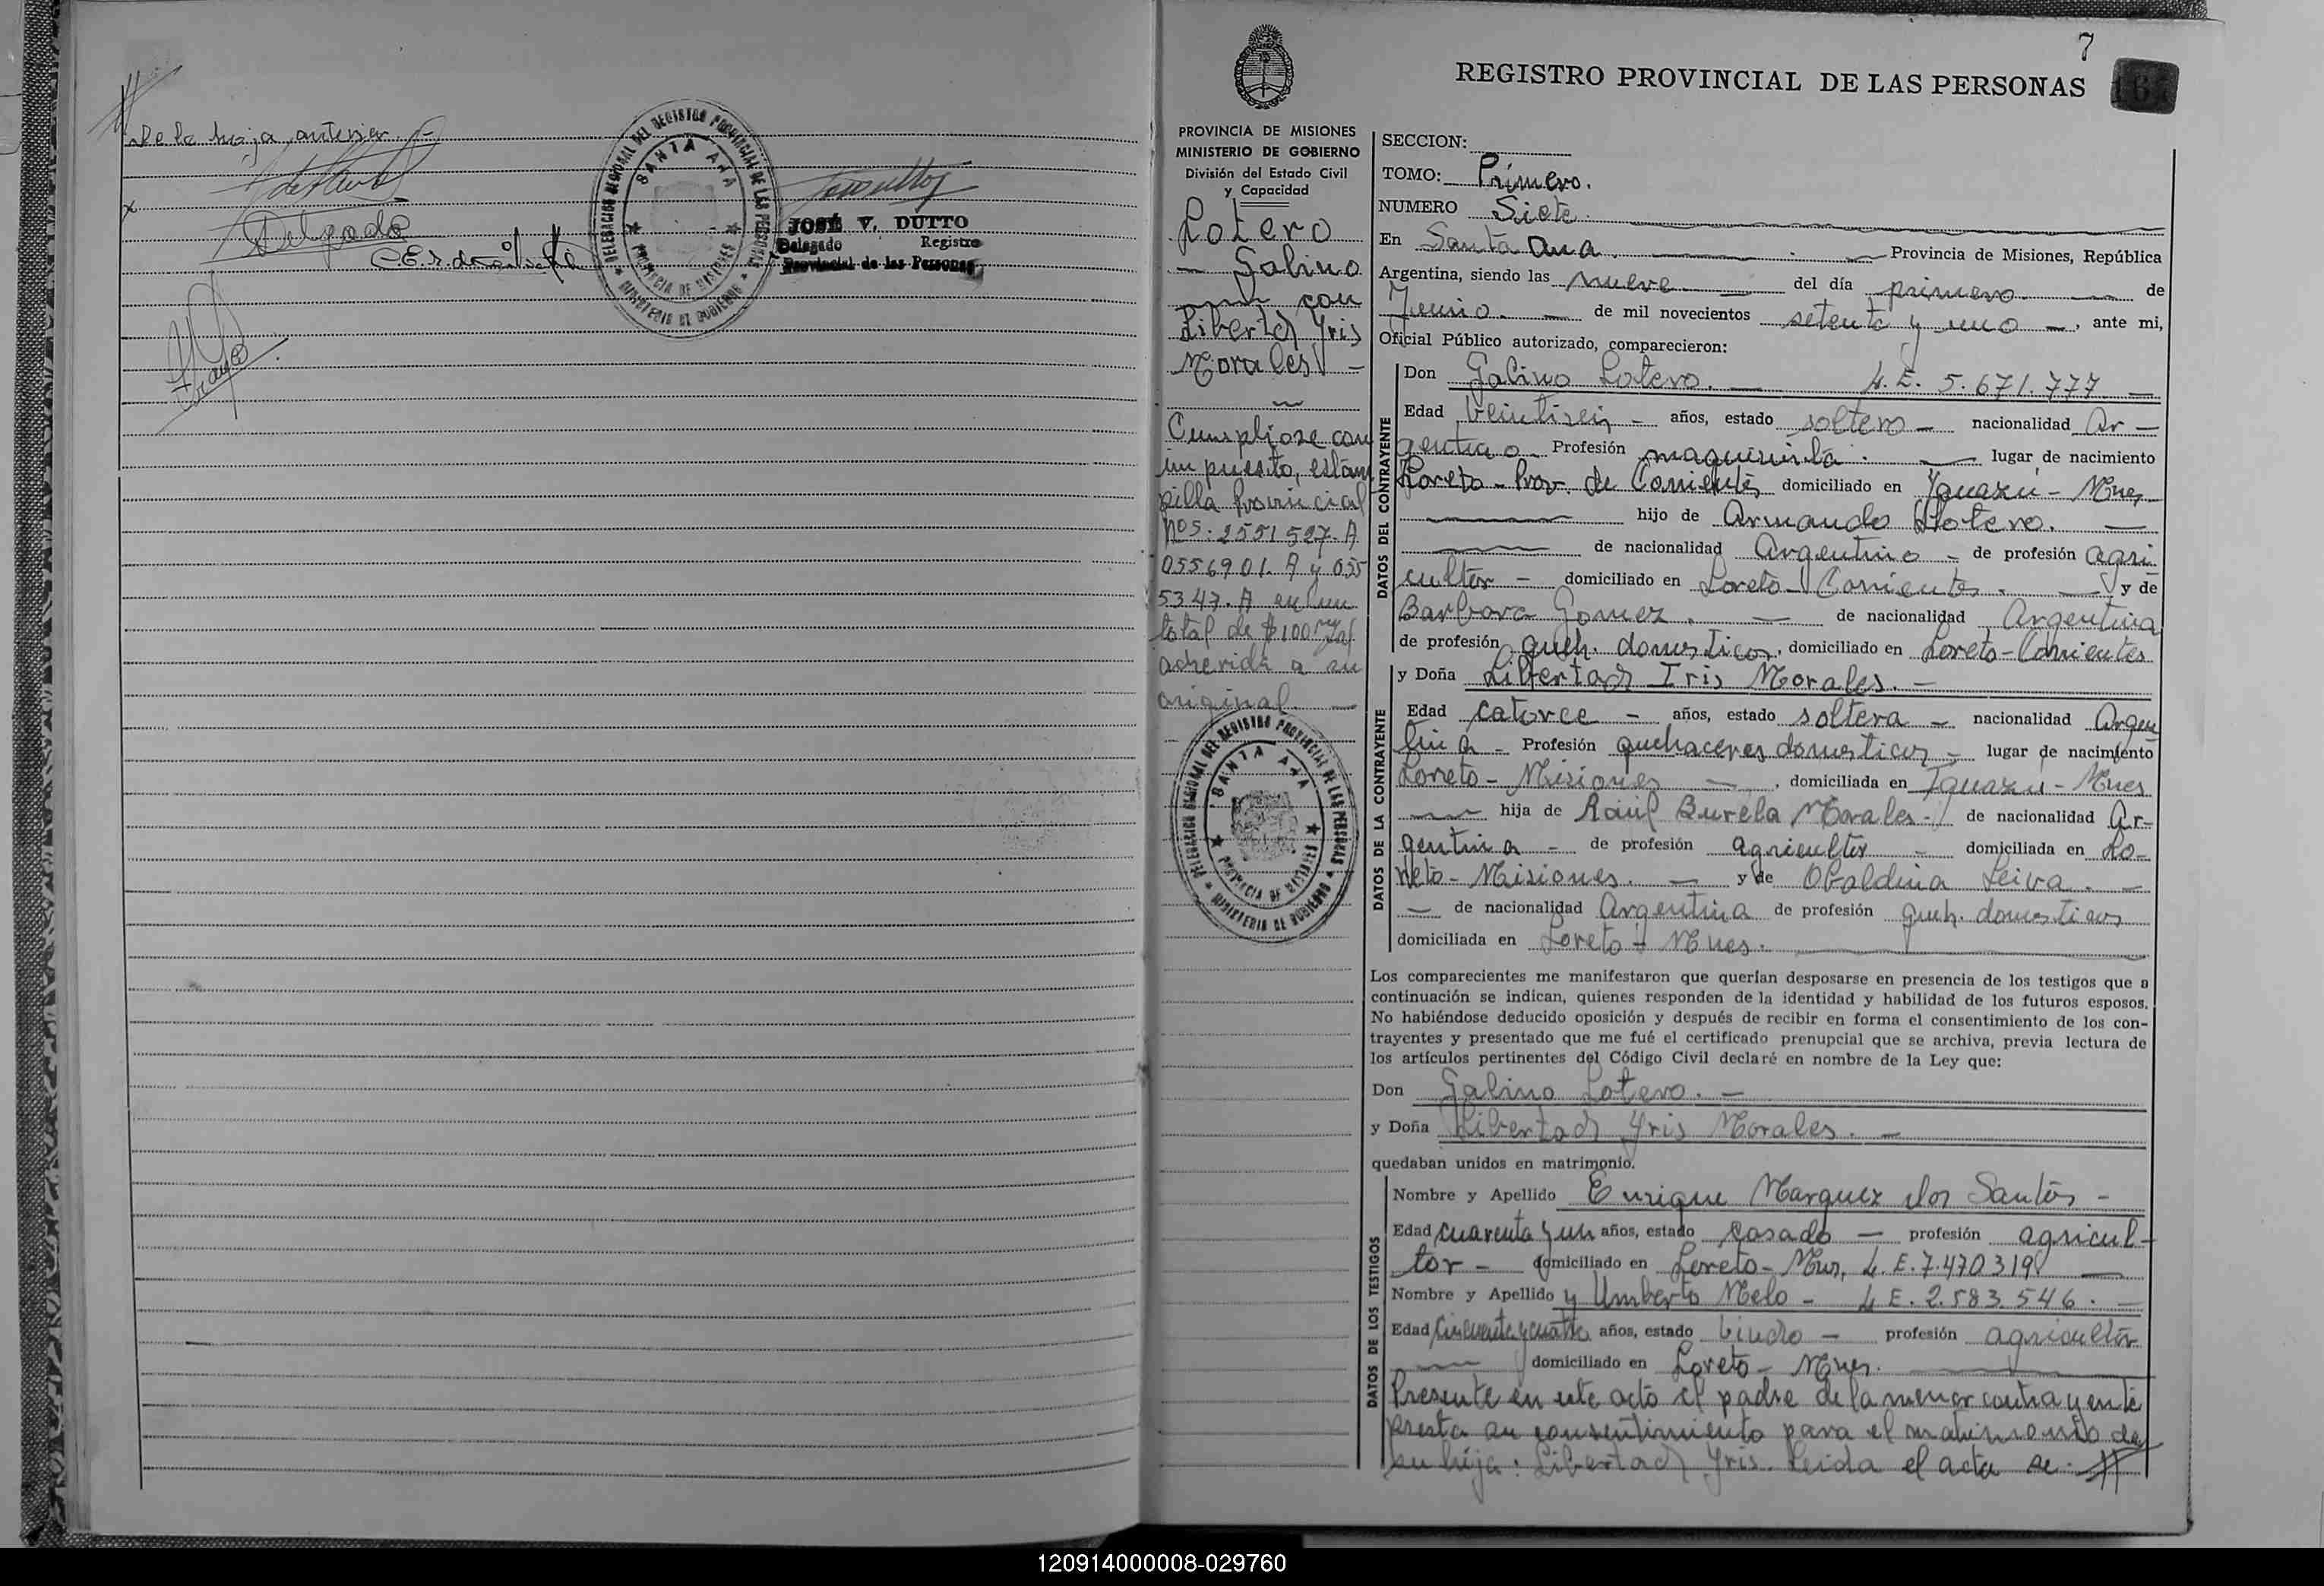 //
De la hoja anterior.-
Delgado
DELEGACION REGIONAL DEL REGISTRO PROVINCIAL DE LAS PERSONAS
SANTA ANA
PROVINCIA DE MISIONES
MINISTERIO DE GOBIERNO
JOSÉ V. DUTTO
Delegado Registro
Provincial de las Personas
7
REGISTRO PROVINCIAL DE LAS PERSONAS
PROVINCIA DE MISIONES
MINISTERIO DE GOBIERNO
División del Estado Civil
y Capacidad
Lotero
- Galino
con
Libertad Yris
Morales -
Cumplióse con
impuesto, estam
pilla Provincial
Nos. 2551527-A
0556901-A y 055
5347-A en un
total de $100
adherida a su
original. -
DELEGACION REGIONAL DEL REGISTRO PROVINCIAL DE LAS PERSONAS
SANTA ANA
PROVINCIA DE MISIONES
MINISTERIO DE GOBIERNO
SECCION:
TOMO: Primero.
NUMERO Siete.
En Santa Ana. Provincia de Misiones, República
Argentina, siendo las nueve. del día primero. de
Junio. de mil novecientos setenta y uno -, ante mi,
Oficial Público autorizado, comparecieron:
DATOS DEL CONTRAYENTE
Don Galino Lotero. L.E. 5.671.777 -
Edad veintiseis - años, estado soltero - nacionalidad Ar-
gentino Profesión maquinista. lugar de nacimiento
Loreto - Prov. de Corrientes domiciliado en Yguazú - Mnes
hijo de Armando Lotero. -
de nacionalidad Argentino - de profesión agri
cultor - domiciliado en Loreto - Corrientes. y de
Barbara Gomez. - de nacionalidad Argentina
de profesión queh. domesticos, domiciliado en Loreto - Corrientes
y Doña Libertad Iris Morales. -
DATOS DE LA CONTRAYENTE
Edad catorce - años, estado soltera - nacionalidad Argen
tina - Profesión quehaceres domesticos - lugar de nacimiento
Loreto - Misiones -, domiciliada en Iguazú - Mnes
hija de Raúl Burela Morales - de nacionalidad Ar-
gentina - de profesión agricultor - domiciliada en Lo-
reto - Misiones. - y de Obaldina Leiva. -
- de nacionalidad Argentina de profesión queh. domesticos
domiciliada en Loreto - Mnes.
Los comparecientes me manifestaron que querían desposarse en presencia de los testigos que a
continuación se indican, quienes responden de la identidad y habilidad de los futuros esposos.
No habiéndose deducido oposición y después de recibir en forma el consentimiento de los con-
trayentes y presentado que me fué el certificado prenupcial que se archiva, previa lectura de
los artículos pertinentes del Código Civil declaré en nombre de la Ley que:
Don Galino Lotero. -
y Doña Libertad Yris Morales. -
quedaban unidos en matrimonio.
DATOS DE LOS TESTIGOS
Nombre y Apellido Enrique Marquez dos Santos -
Edad cuarenta y un años, estado casado - profesión agricul-
tor - domiciliado en Loreto - Mnes, L.E. 7.470319
Nombre y Apellido y Umberto Melo - L E. 2.583.546. -
Edad cincuenta y cuatro años, estado viudo - profesión agricultor
domiciliado en Loreto - Mnes.
Presente en este acto el padre de la menor contrayente
presta su consentimiento para el matrimonio de
su hija: Libertad Yris. Leida el acta se. //
120914000008-029760